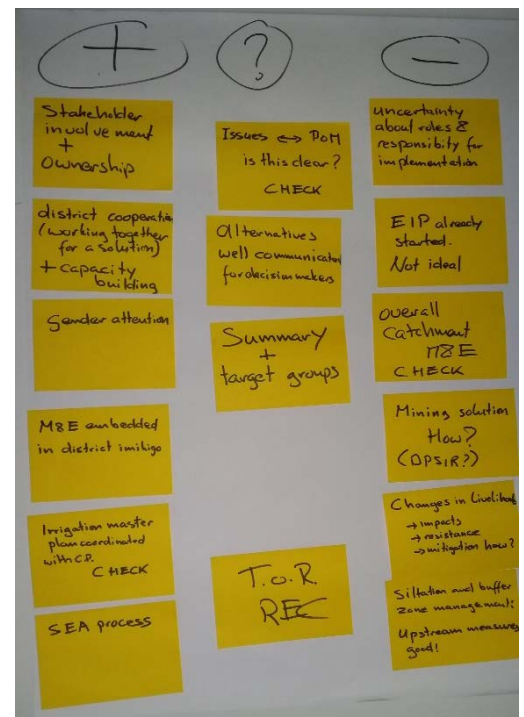 +
?
-
Stakeholder
involvement
+
Ownership
district cooperation
(working together
for a solution)
+ capacity
building
Gender attention
M&E embedded
in district imihigo
Irrigation master
plan coordinated
with C.P.
CHECK
SEA process
Issues ↔ PoM
is this clear?
CHECK
Alternatives
well communicated
for decision makers
Summary
+
target groups
T.o.R
REC
uncertainty
about roles &
responsibity for
implementation
EIP already
started.
Not ideal
overall
Catchment
M&E
CHECK
Mining solution
How?
(DPSIR?)
Changes in Livelihood
→ impacts
→ resistance
→ mitigation how?
Siltation and buffer
zone management:
Upstream measures
good!